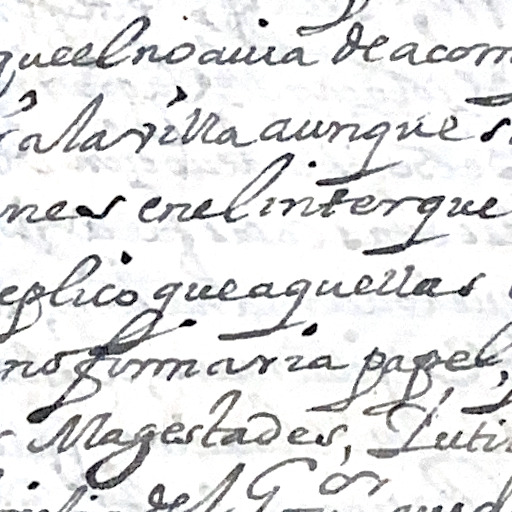 que el no auia de acom
a la villa aunque s
nes en el inter que
eplico que aquellas
no firmaria papel
Magestades,
del Gor